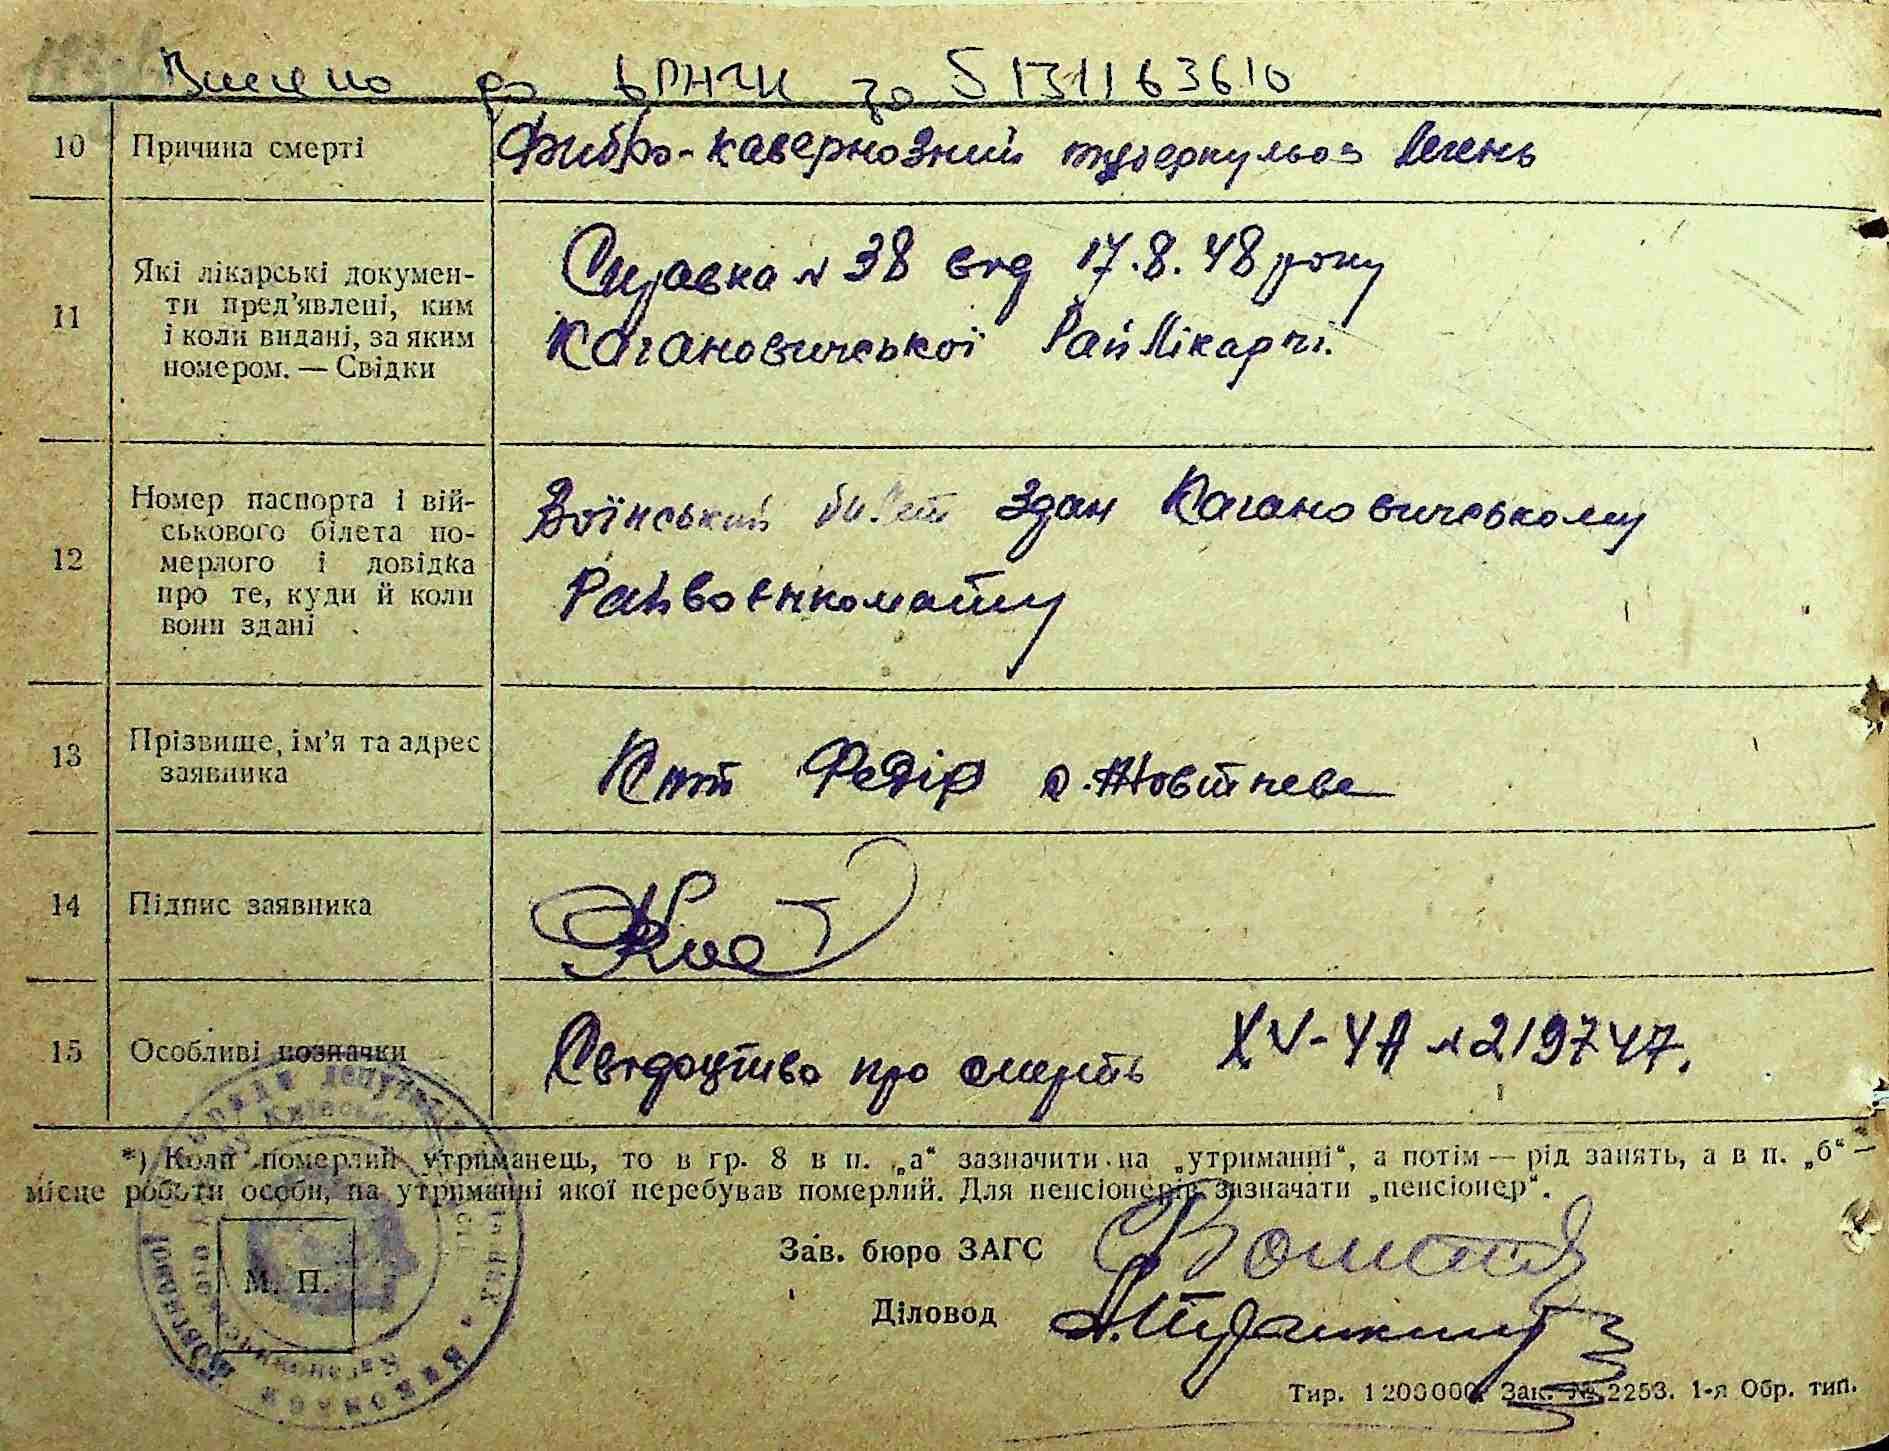 Внесено до ЄРНЧК за 5131163610
10 Причина смерті Фибро-кавернозний туберкульоз легень
11 Які лікарські документи пред'явлені, ким і коли видані, за яким номером. — Свідки
Справка № 38 від 17.8.48 року
Кагановичської Райлікарні.
12 Номер паспорта і військового білета померлого і довідка про те, куди й коли вони здані
Воїнський билет здан Кагановичському
Райвоєнкомату
13 Прізвище, ім'я та адрес заявника
Кот Федір с. Жовтневе
14 Підпис заявника
Кот
15 Особливі позначки Свідоцтво про смерть XV-УА № 219747.
*) Коли померлий утриманець, то в гр. 8 в п. „а“ зазначити на „утриманні“, а потім — рід занять, а в п. „б“ —
місце роботи особи, на утриманні якої перебував померлий. Для пенсіонерів зазначати „пенсіонер“.
Зав. бюро ЗАГС
Діловод
М. П.
Тир. 1200000. Зак. № 2253. 1-я Обр. тип.